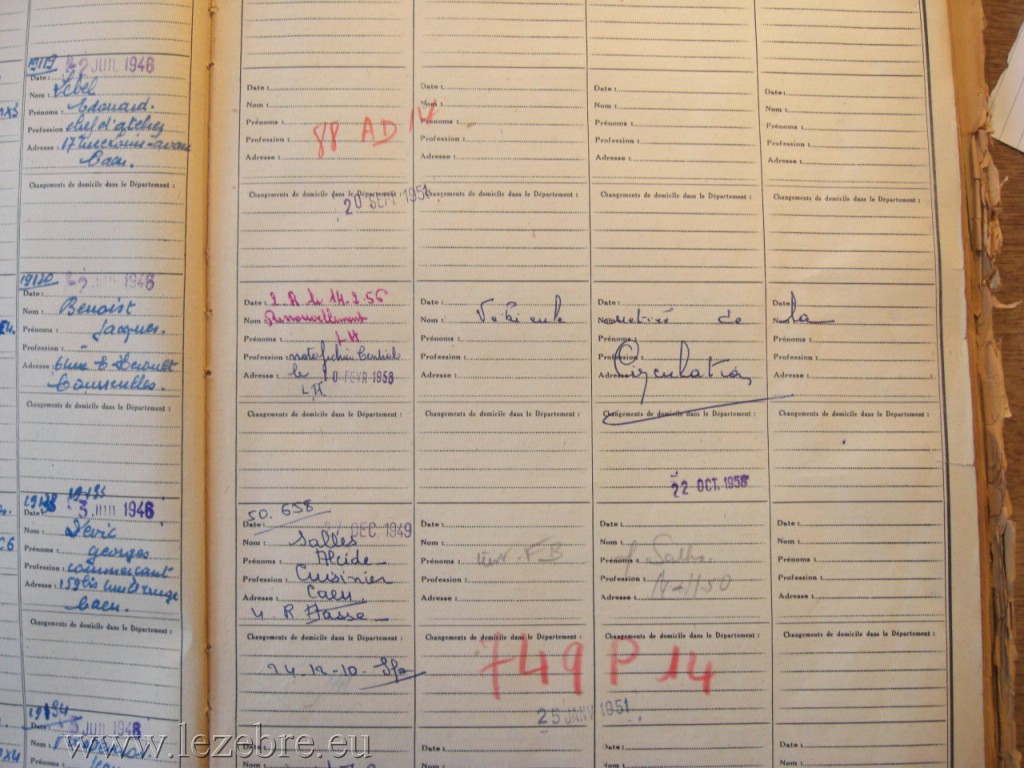 19119 2 JUIL 1946
Date :
Nom : Lebel
Prénoms : Edouard.
Profession chef d'atelier
Adresse : 17
Caen.
Changements de domicile dans le Département :
Date :
Nom :
Prénoms :
Profession :
Adresse :
88 AD 14
Changements de domicile dans le Département :
20 SEPT 1951
Date :
Nom :
Prénoms :
Profession :
Adresse :
Changements de domicile dans le Département :
Date :
Nom :
Prénoms :
Profession :
Adresse :
Changements de domicile dans le Département :
Date :
Nom :
Prénoms :
Profession :
Adresse :
Changements de domicile dans le Département :
19120 2 JUIL 1946
Date :
Nom : Benoist
Prénoms : Jacques.
Profession :
Adresse
Courseulles.
Changements de domicile dans le Département :
Date : 2. R le 14.2.56
Nom : Renouvellement
Prénoms : LH
Profession note fichier Central
Adresse : le 10 FEVR 1956
LH
Changements de domicile dans le Département :
Date :
Nom : Véhicule
Prénoms :
Profession :
Adresse :
Changements de domicile dans le Département :
Date :
Nom retiré de
Prénoms :
Profession :
Adresse Circulation
Changements de domicile dans le Département :
22 OCT. 1956
Date :
Nom la
Prénoms :
Profession :
Adresse :
Changements de domicile dans le Département :
19135
Date : 3 JUIL 1946
Nom : Devic
Prénoms : georges
Profession commerçant
Adresse : 159 bis
Caen.
Changements de domicile dans le Département :
50. 658
Date : DEC 1949
Nom : Salles
Prénoms : Alcide
Profession : Cuisinier
Adresse : Caen
4 R Hasse
Changements de domicile dans le Département :
24.12-10.
Date :
Nom :
Prénoms : FB
Profession :
Adresse :
Changements de domicile dans le Département :
749 P 14
25 JANV 1951
Date :
Nom :
Prénoms :
Profession :
Adresse :
Changements de domicile dans le Département :
Date :
Nom :
Prénoms :
Profession :
Adresse :
Changements de domicile dans le Département :
19134
Date : 3 JUIL 1946
Nom :
Prénoms :
Date :
Nom :
Prénoms :
Date :
Nom :
Prénoms :
Date :
Nom :
Prénoms :
Date :
Nom :
Prénoms :
www.lezebre.eu